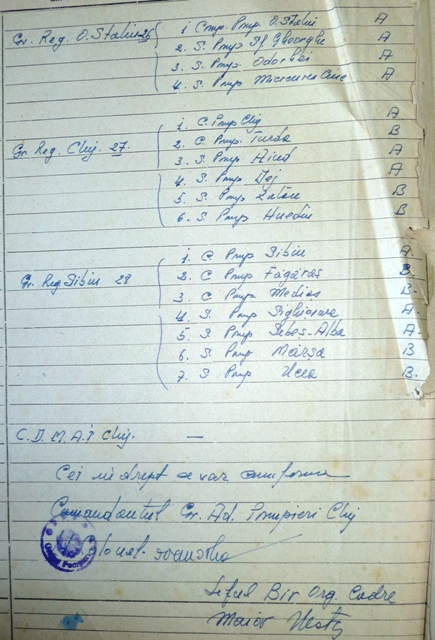 Gr. Reg. O. Stalin 26
1. Comp. Pmp. O. Stalin A
2. S. Pmp. Sf Gheorghe A
3. S. Pmp. Odorhei A
4. S. Pmp Miercurea Ciuc A
Gr Reg. Cluj. 27.
1. C. Pmp Cluj A
2. C. Pmp. Turda B
3. S. Pmp Aiud A
4. S. Pmp Dej A
5. S. Pmp Zalau B
6. S. Pmp Huedin B
Gr. Reg Sibiu 28
1. C Pmp Sibiu A.
2. C Pmp Făgăraș B
3. C Pmp Medias B.
4. S. Pmp Sighisoara A
5. S. Pmp Sebeș-Alba A
6. S. Pmp Mârșa B
7. S Pmp Ucea B.
C. D. M. A. T Cluj. —
Cei in drept se vor conforma
Comandantul Gr. Ad. Pompieri Cluj
Șeful Bir Org. Cadre
Maior